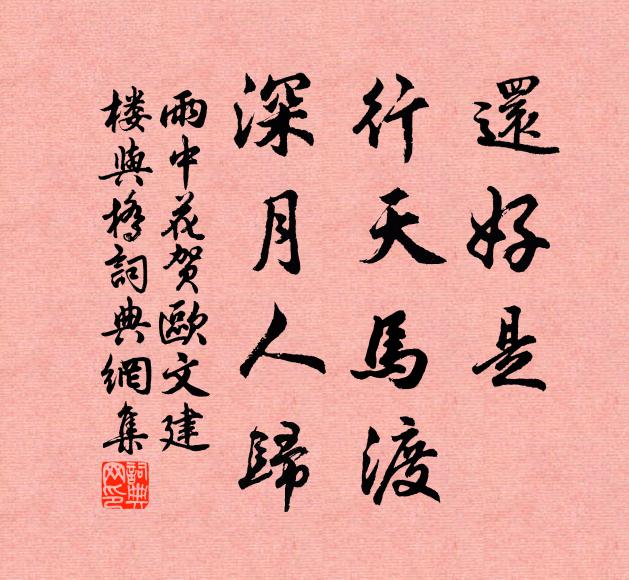 還好是
行天馬渡
深月人歸
雨中花賀歐文建
楼與橋詞典網集
詞典
网印